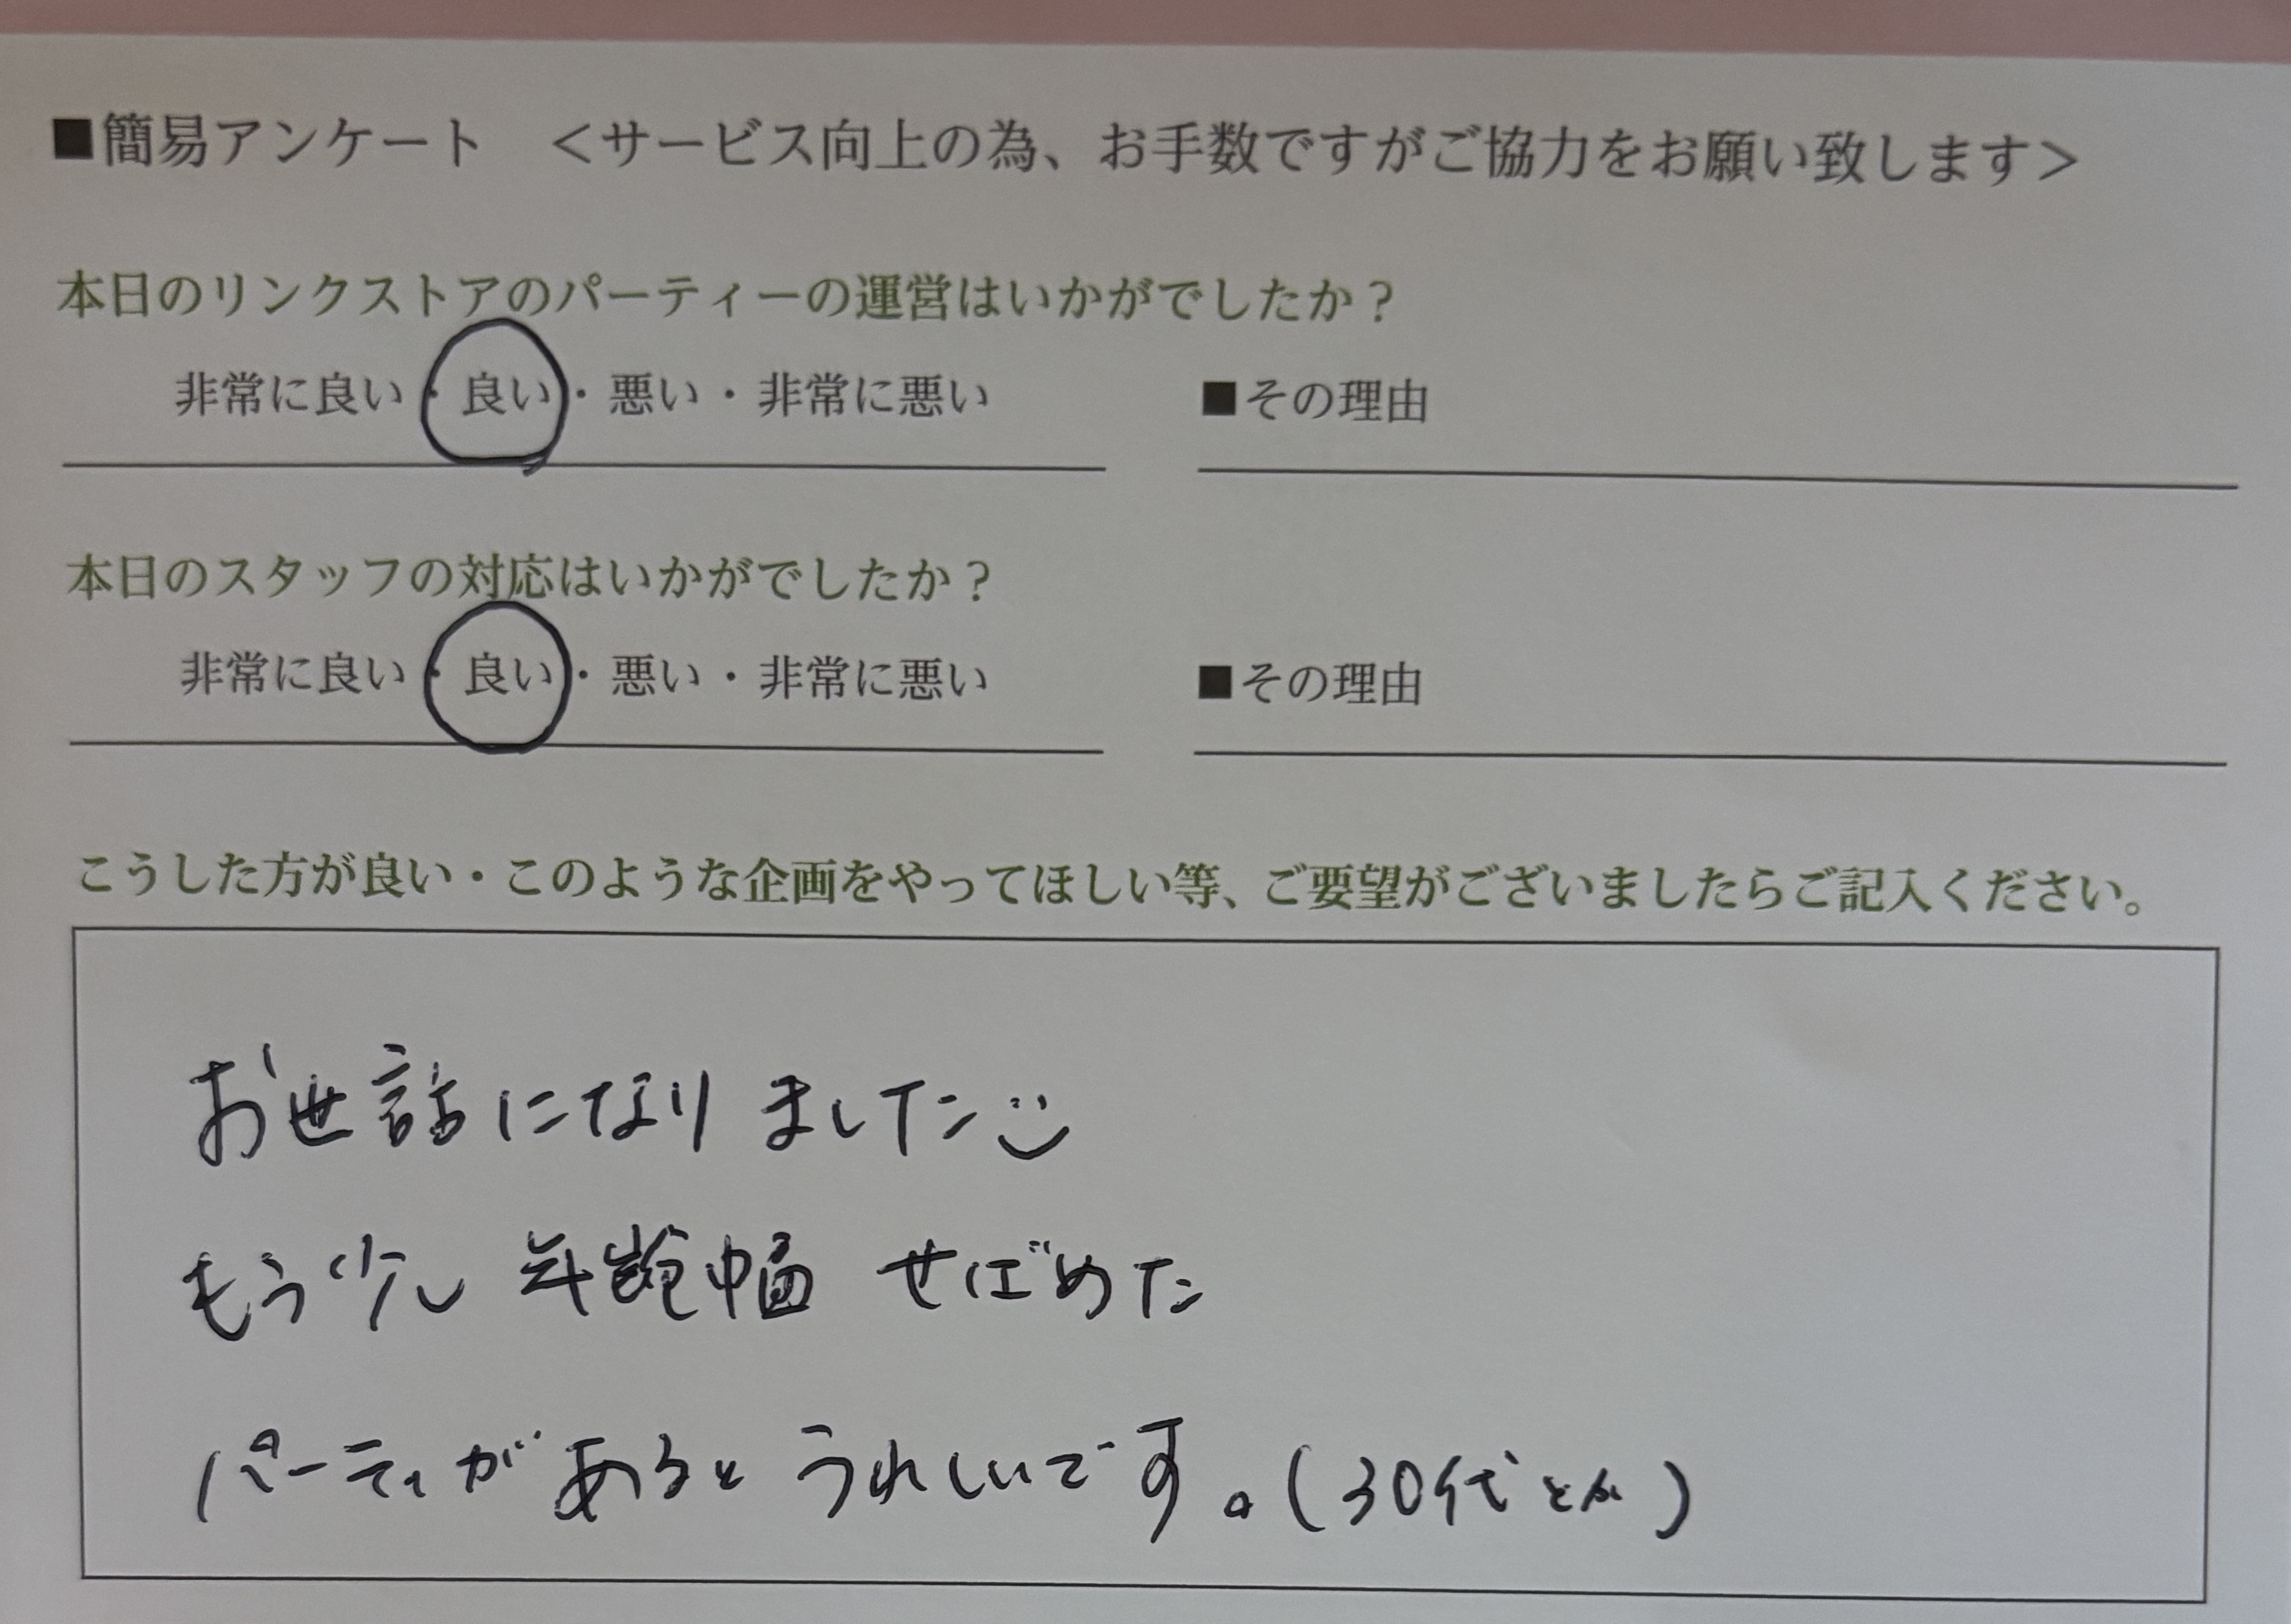 ■簡易アンケート ＜サービス向上の為、お手数ですがご協力をお願い致します＞
本日のリンクストアのパーティーの運営はいかがでしたか？
非常に良い・良い・悪い・非常に悪い ■その理由
本日のスタッフの対応はいかがでしたか？
非常に良い・良い・悪い・非常に悪い ■その理由
こうした方が良い・このような企画をやってほしい等、ご要望がございましたらご記入ください。
お世話になりました
もう少し 年齢幅 せばめた
パーティがあると うれしいです。(30代とか)